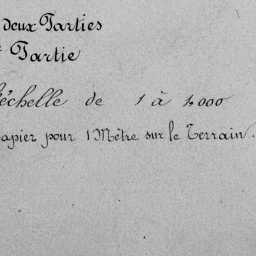 deux Parties
Partie
échelle de 1 à 4000
apier pour 1 Mètre sur le Terrain.